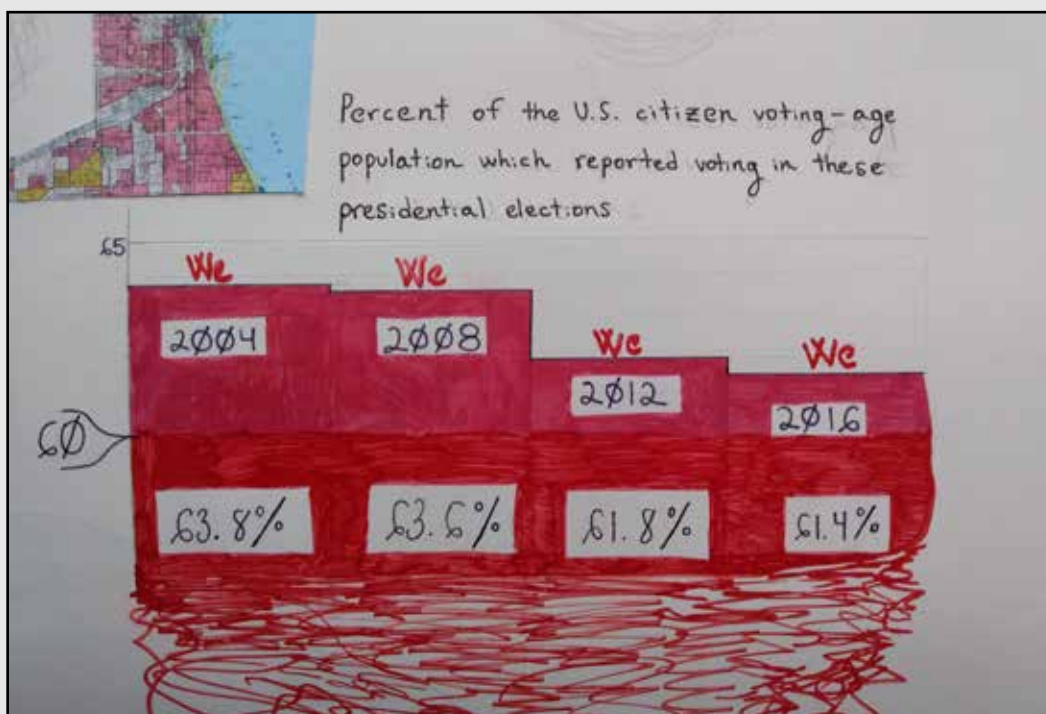 Percent of the U.S. citizen voting-age
population which reported voting in these
presidential elections
65
We We We We
2004 2008 2012 2016
60
63.8% 63.6% 61.8% 61.4%